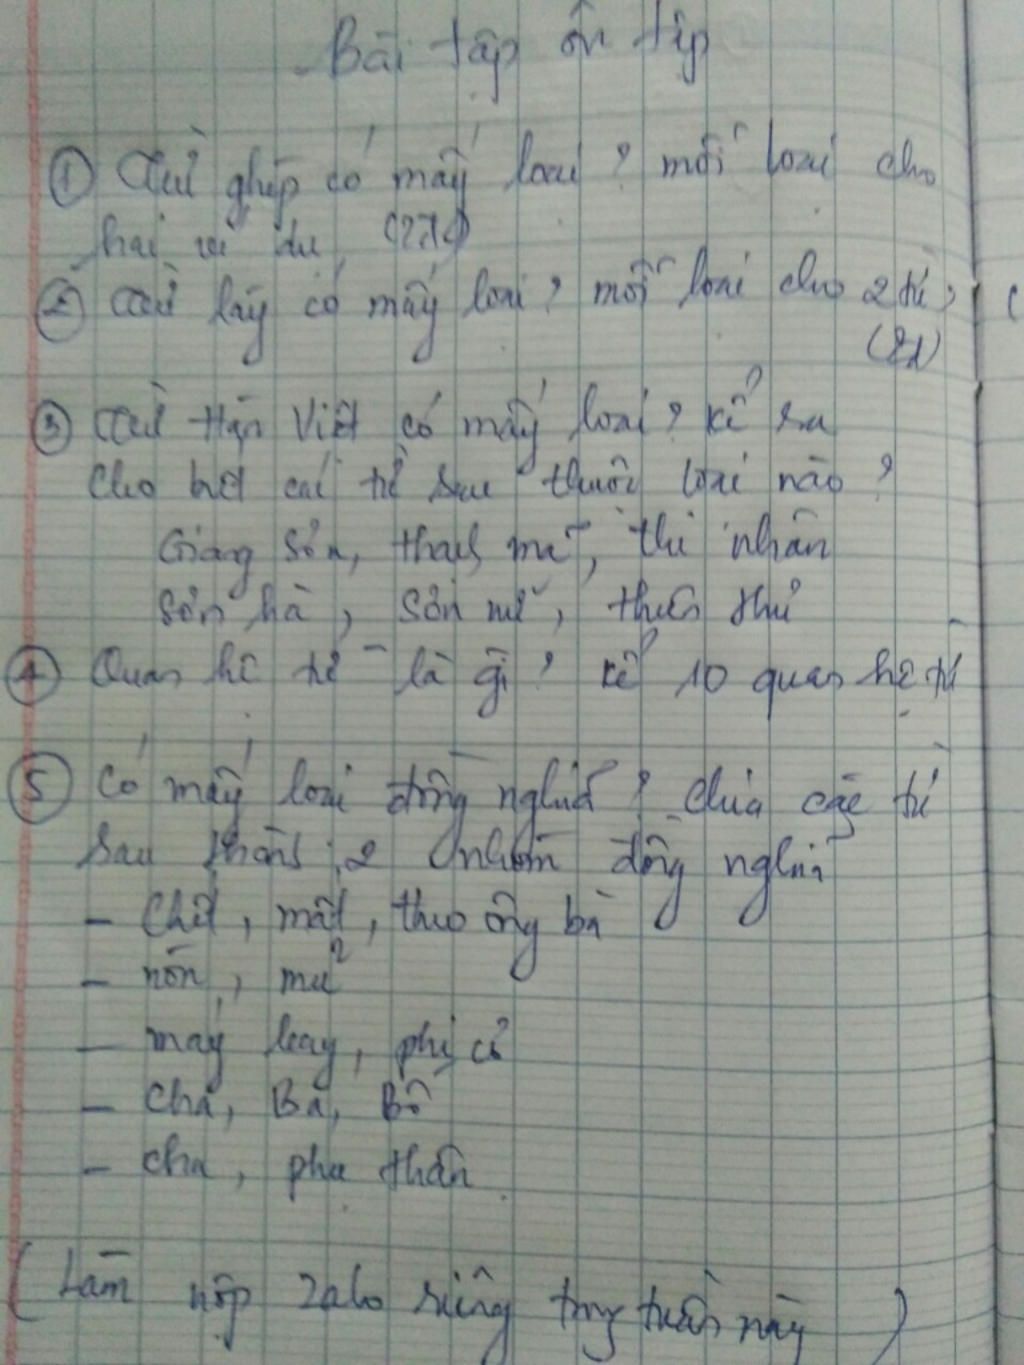 Bài tập ôn tập
① Từ ghép có mấy loại? mỗi loại cho
hai ví dụ
② Từ láy có mấy loại? mỗi loại cho 2 từ?
(2đ)
③ Từ Hán Việt có mấy loại? kể ra
Cho biết các từ sau thuộc loại nào?
Giang Sơn, thạch mã, thi nhân
Sơn hà, Sơn nữ, thiên thư
④ Quan hệ từ là gì? kể 10 quan hệ từ
⑤ Có mấy loại đồng nghĩa? chia các từ
sau thành 2 nhóm đồng nghĩa
- Chết, mất, theo ông bà
- nón, mũ
- máy bay, phi cơ
- Cha, Ba, Bố
- cha, phụ thân
(Làm nộp zalo riêng trong tuần này)